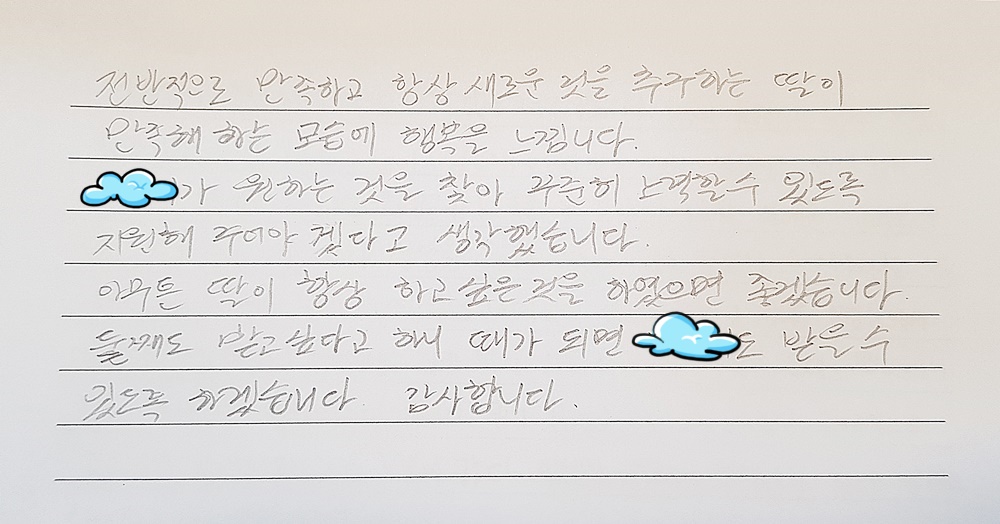 전반적으로 만족하고 항상 새로운 것을 추구하는 딸이
만족해 하는 모습에 행복을 느낍니다.
가 원하는 것을 찾아 꾸준히 노력할 수 있도록
지원해 주어야 겠다고 생각했습니다.
아무튼 딸이 항상 하고 싶은 것을 하였으면 좋겠습니다.
둘째도 받고 싶다고 하니 때가 되면 도 받을 수
있도록 하겠습니다. 감사합니다.